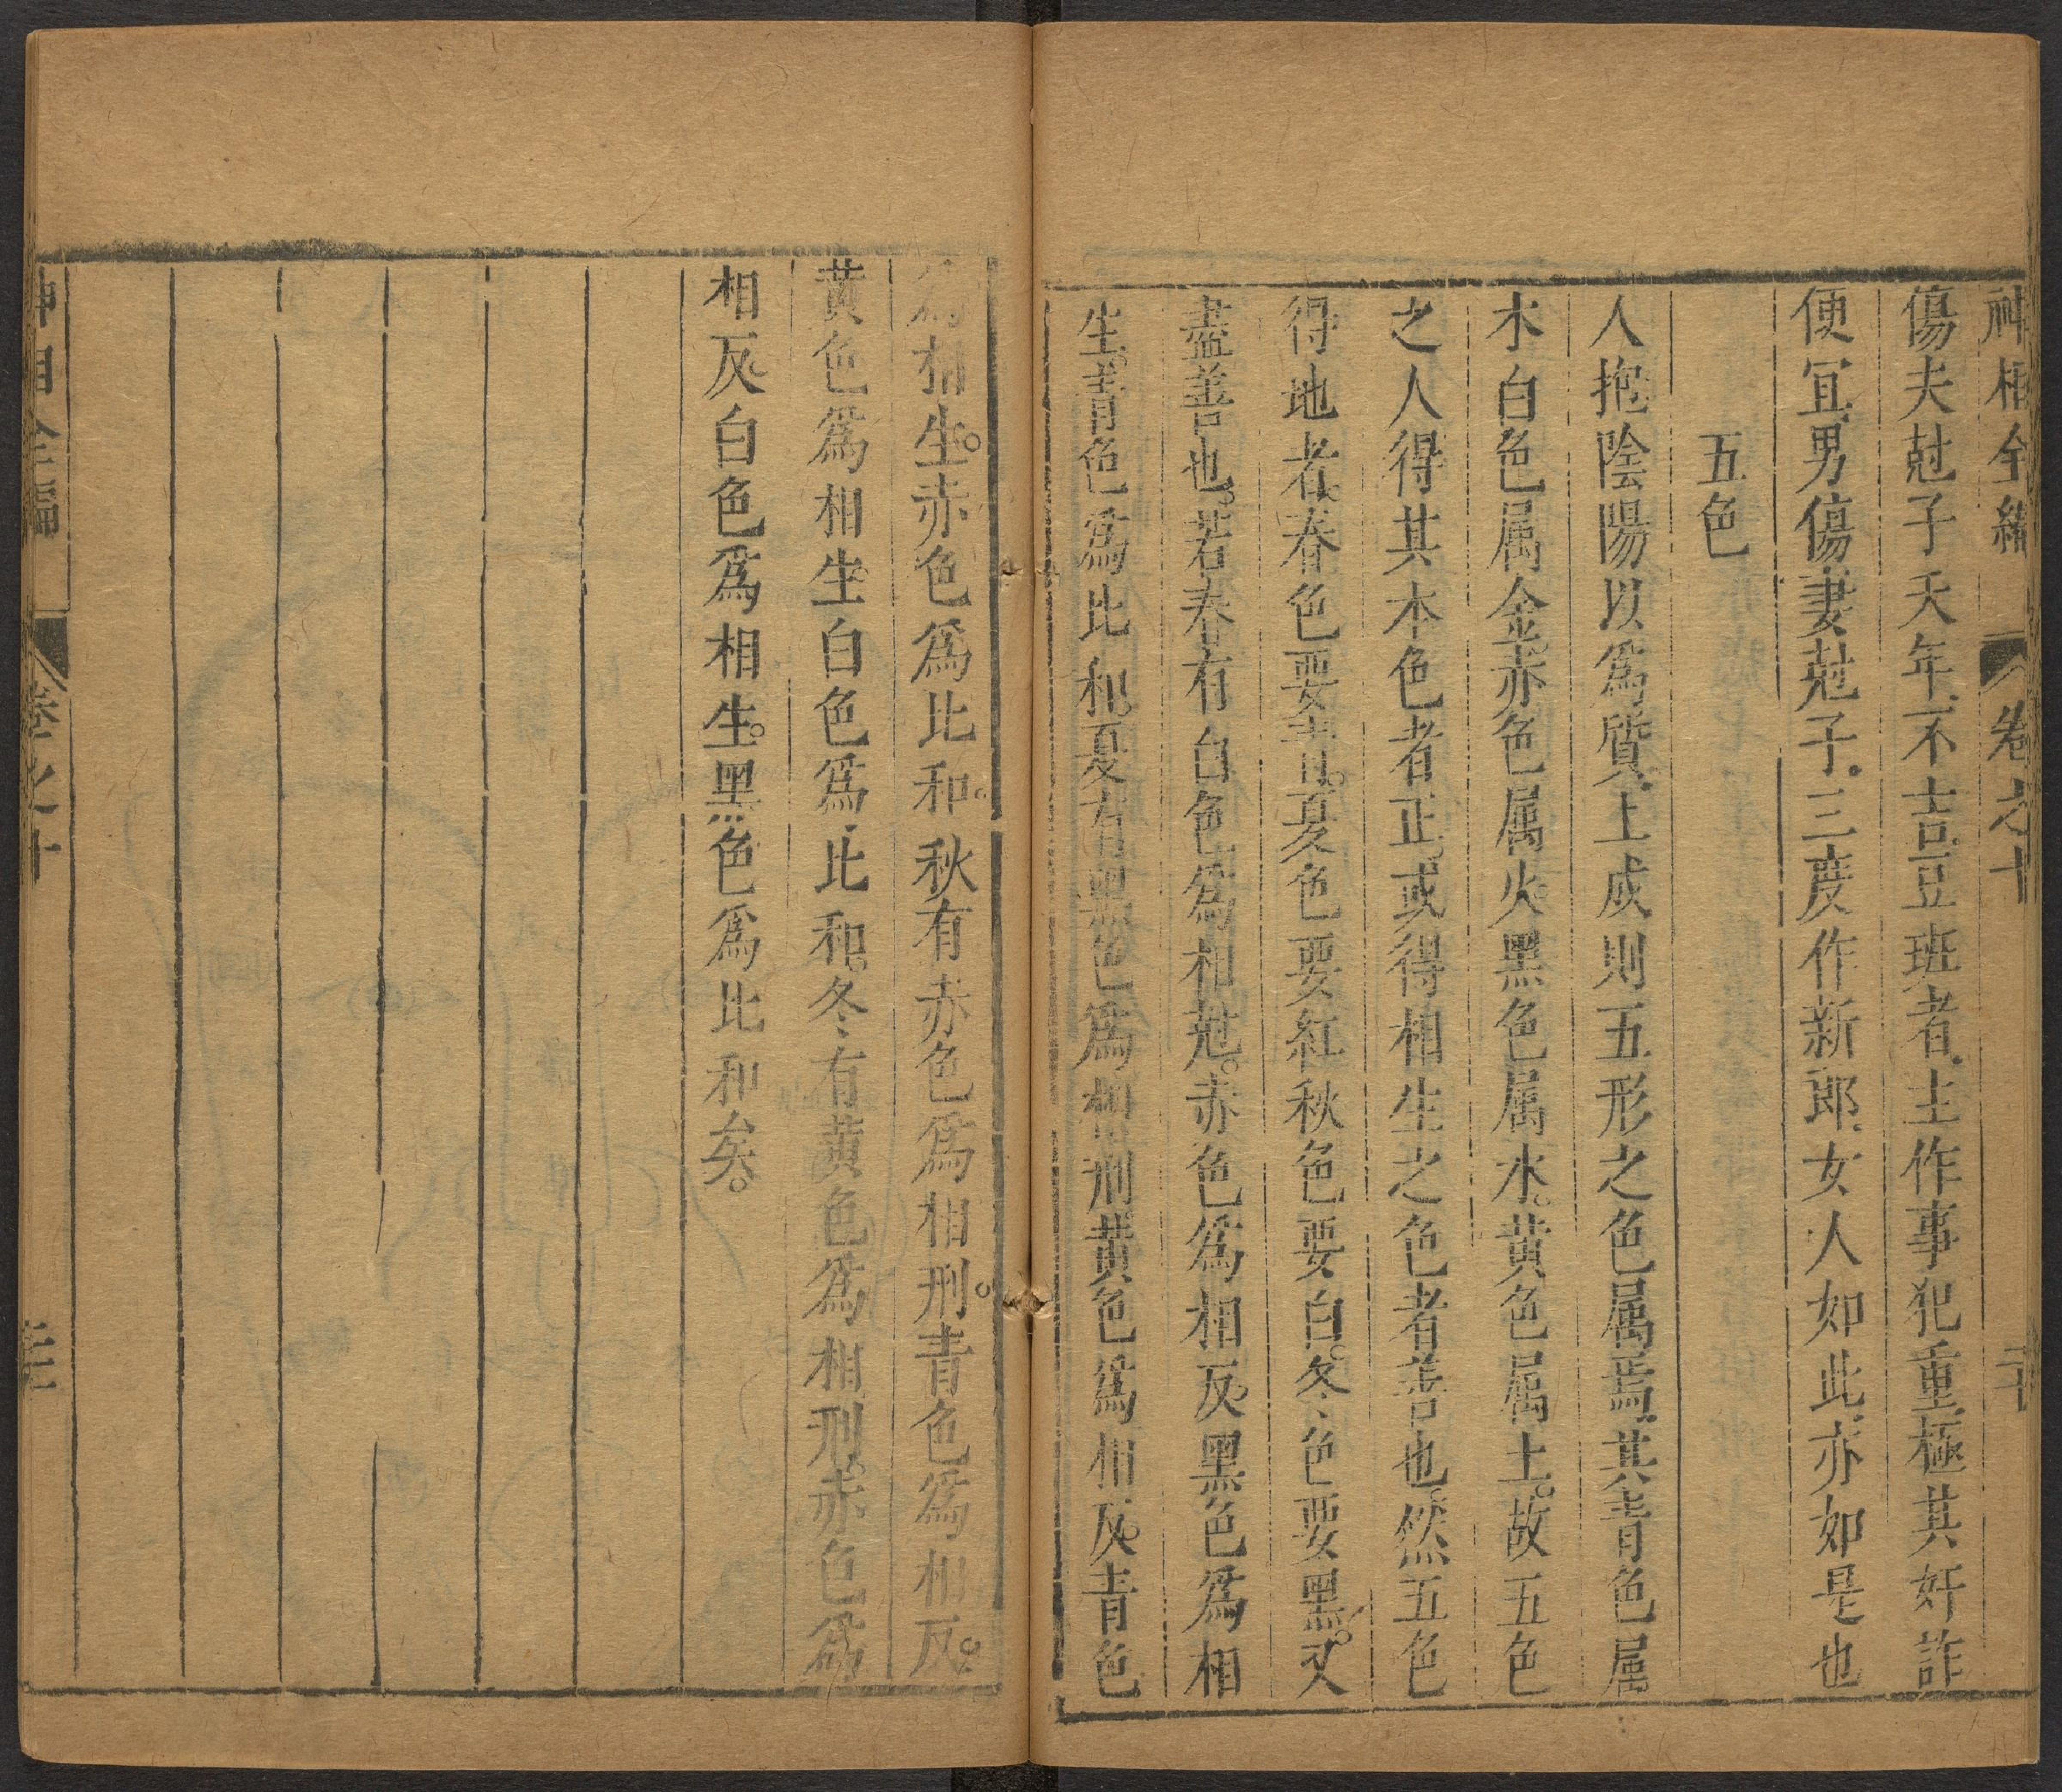 神相全編 卷之十 二十
傷夫尅子夭年、不吉豆班者、主作事犯重、極其奸詐
便冝、男傷妻尅子、三度作新郎、女人如此、亦如是也
五色
人抱陰陽以爲質、土成則五形之色属焉、其青色属
木白色属金、赤色属火、黑色属水。黄色属土。故五色
之人得其本色者正、或得相生之色者善也。然五色
得地者。春色要青。夏色要紅秋色要白。冬色要黑。又
盡善也。若春有白色爲相尅。赤色爲相反、黑色爲相
生。青色爲比和。夏有黑色爲相刑黄色爲相反。青色
爲相生。赤色爲比和。秋有赤色爲相刑。青色爲相反。
黄色爲相生。白色爲比和。冬有黄色爲相刑。赤色爲
相反。白色爲相生。黑色爲比和矣。
神相全編 卷之十